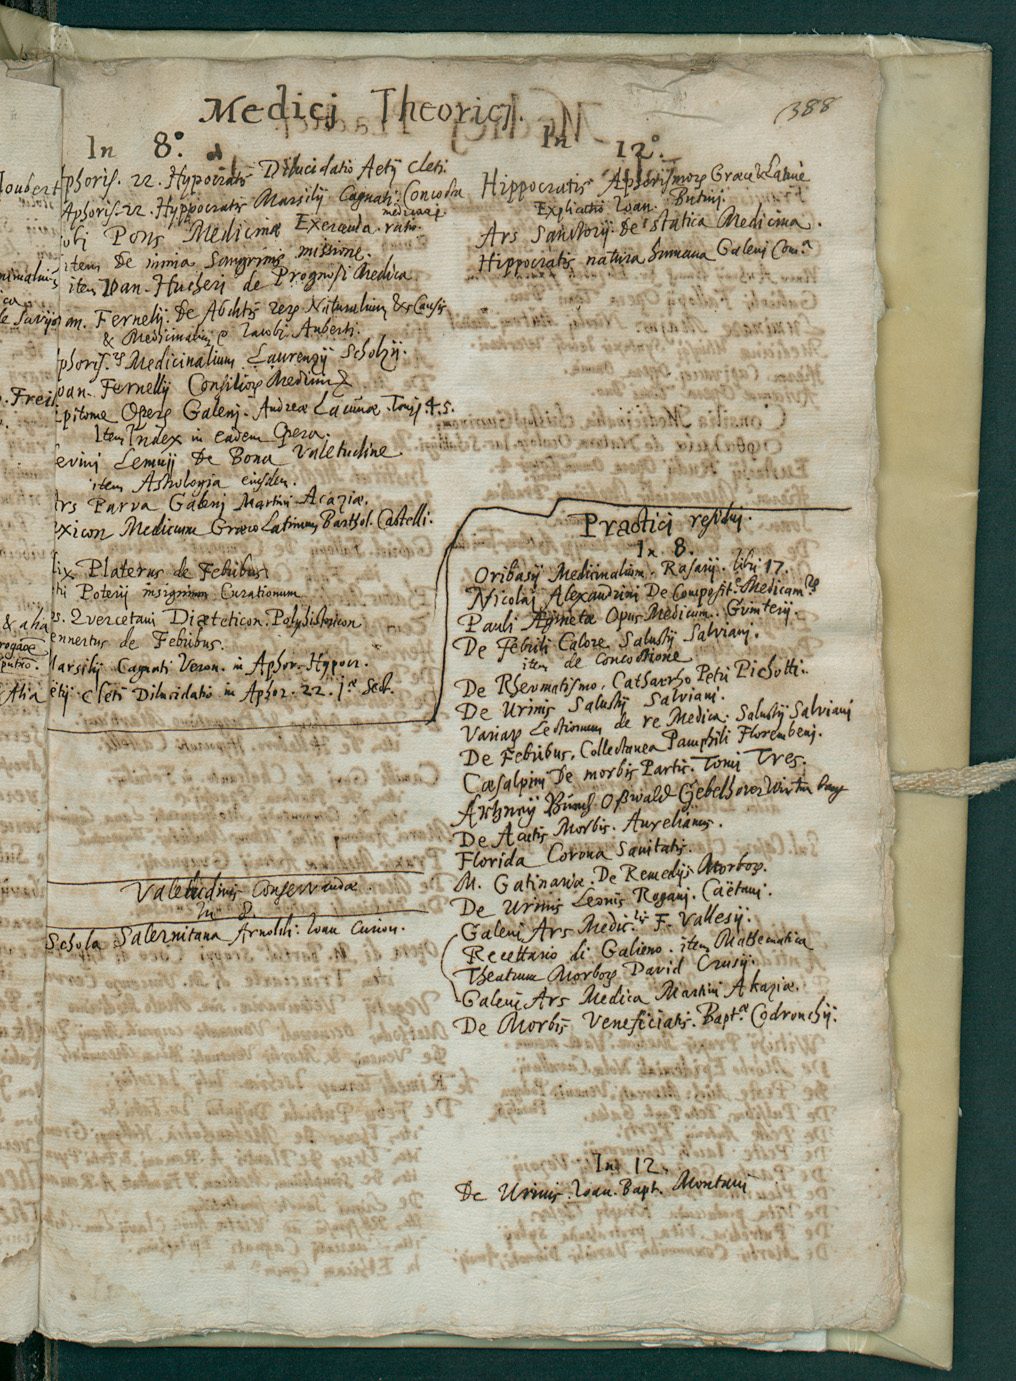 388
Medicj Theoricj.
In 8.°
phoris. 22. Hypocratis Dilucidatio Aetij Cleti.
Aphoris. 22. Hyppocratis Marsilij Cagnati. Concossa
obi Pons Medicinæ Exercenda. ratio.
item De nimia Sanguinis missione.
item Ioan. Hucheri de Prognosi Medica
an. Fernelij De Abditis rerū Naturalium & Causis
& Medicinalium Iacobi Auberti.
phoris. Medicinalium Laurenzij Scholzij.
oan. Fernellij Consiliorū Medicin
pitome Operū Galeni. Andreæ Lacunæ. Tomj 4. 5.
Item Index in eadem Opera.
evinj Lemnij De Bona Valetudine
item Astrologia eiusdem.
Ars Parva Galenj Martini Acaziæ.
exicon Medicum Græco Latinum Barthol. Castelli.
lix Platerus de Febribus.
tij Poterij insignium Curationum
os. Quercetani Diæteticon. Polyhistoricon
ennertus de Febribus.
Marsilij Cagnati Veron. in Aphor. Hypocr.
etij Cleti Dilucidatio in Aphor. 22. j.ª Sect.
Valetudinis Conservandæ.
In 8.
Schola Salernitana Arnoldi: Ioan Curion.
In 12.°
Hippocratis Aphorismorū Græcè & Latinè
Explicatio Ioan. Butini.
Ars Sanctorij. De Statica Medicina.
Hippocratis natura humana Galenj Com.ª
Practicj residuj.
In 8.
Oribasij Medicinalium. Rasarij. libri 17.
Nicolaj Alexandrini De Composit.e Medicam.
Pauli Aginetæ Opus Medicum. Gunterij.
De Febrili Calore Salustij Salvianj.
item de Concoctione
De Rheumatismo, Catharrho Petri Pichotti.
De Urinis Salustij Salviani.
Variarū Lectionum de re Medica. Salustij Salviani
De Febribus, Collectanea Pamphili Florembeni.
Cæsalpini De morbis Partic. Tomi Tres.
Artzneij Buech Oswald Gebelhover Wirtenburg
De Acutis Morbis. Aurelianus.
Florida Corona Sanitatis.
M. Gatinaria. De Remedijs Morborū.
De Urinis Leonis Rogani. Caëtani.
Galeni Ars Medic. F. Vallesij.
Recettario di Galieno. item Mathematica
Theatrum Morborū David Crusij.
Galenj Ars Medica Martini Akaziæ.
De Morbis Veneficiatis. Bapt.æ Codronchij.
In 12.
De Urinis. Ioan. Bapt. Montani